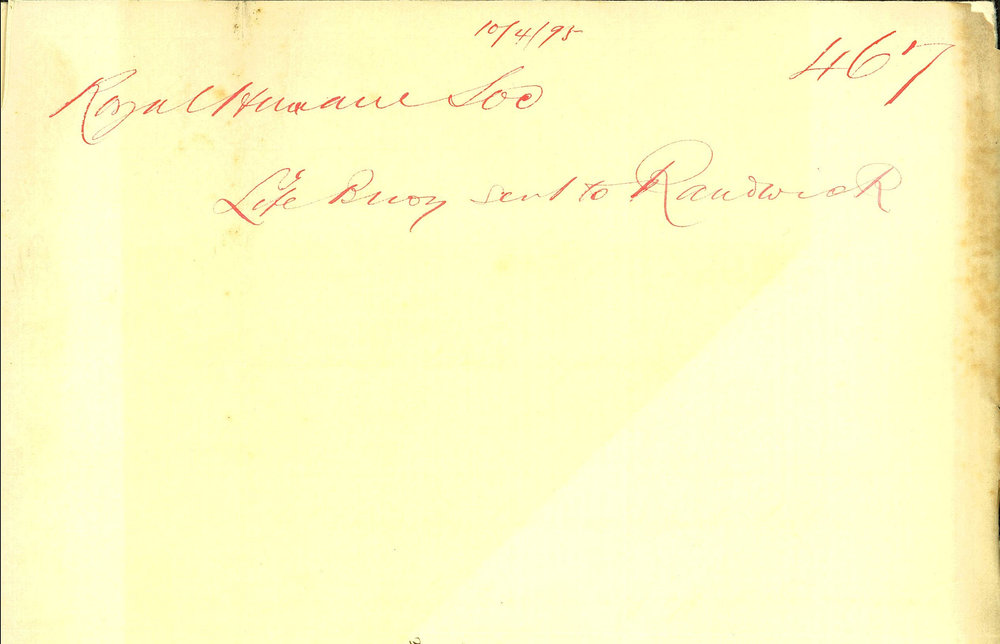 10/4/95
467
Royal Humane Soc
Life Buoy sent to Randwick